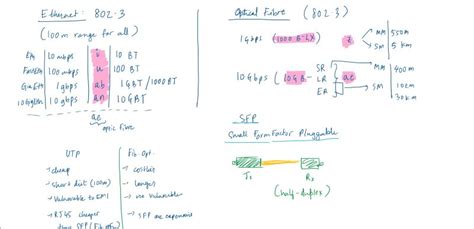 Ethernet: 802.3
(100m range for all)
10mbps | i | 10 BT
100mbps | u | 100 BT
1gbps | ab | 1GBT / 1000BT
10gbps | an | 10GBT
ae
optic Fibre
UTP
→ cheap
→ short dist (100m)
→ Vulnerable to EMI
→ RJ45 cheaper
than SFP
Fib. Opt.
→ costlier
→ longer
→ no Vulnerable
→ SFP are expensive
Optical Fibre (802.3)
1 Gbps (1000 B-LX) z MM 550m
SM 5 km
10 Gbps (10GB- SR ae MM 400m
LR SM 10km
ER 30km
SFP
Small Form Factor Pluggable
Tx Rx
(half-duplex)